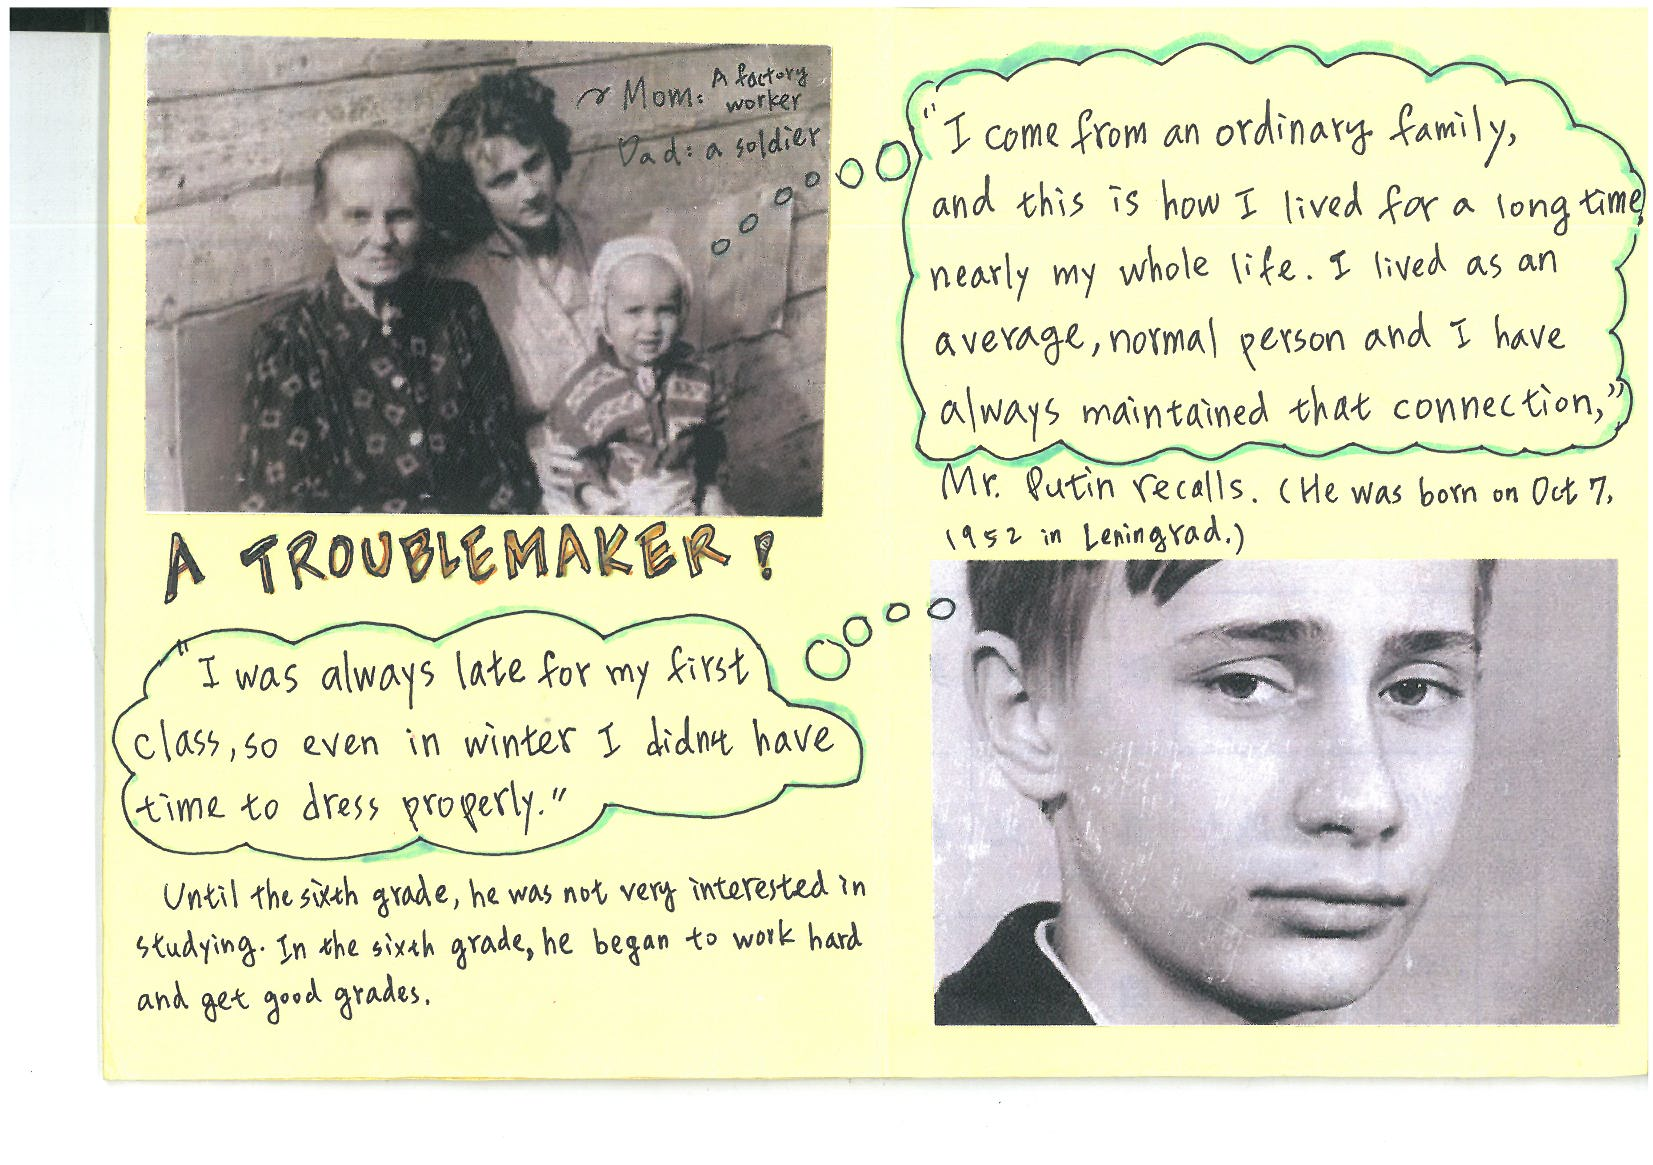 Mom: A factory
worker
Dad: a soldier
"I come from an ordinary family,
and this is how I lived for a long time,
nearly my whole life. I lived as an
average, normal person and I have
always maintained that connection,"
Mr. Putin recalls. (He was born on Oct 7,
1952 in Leningrad.)
A TROUBLEMAKER!
"I was always late for my first
class, so even in winter I didn't have
time to dress properly."
Until the sixth grade, he was not very interested in
studying. In the sixth grade, he began to work hard
and get good grades.